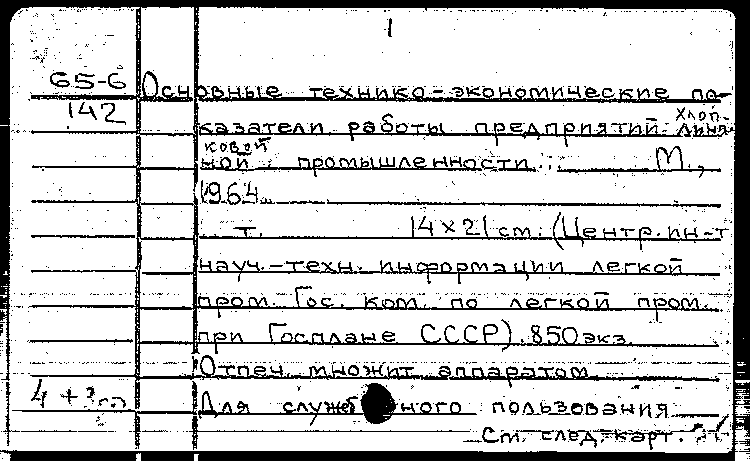 1
65-6 Основные технико-экономические по-
142
казатели работы предприятий хлоп-
ковой промышленности. М.,
1964.
т. 14×21 см. (Центр. ин-т
науч.-техн. информации легкой
пром. Гос. ком. по легкой пром.
при Госплане СССР). 850 экз.
Отпеч. множит. аппаратом
4 +
Для служебного пользования
См. след. карт.